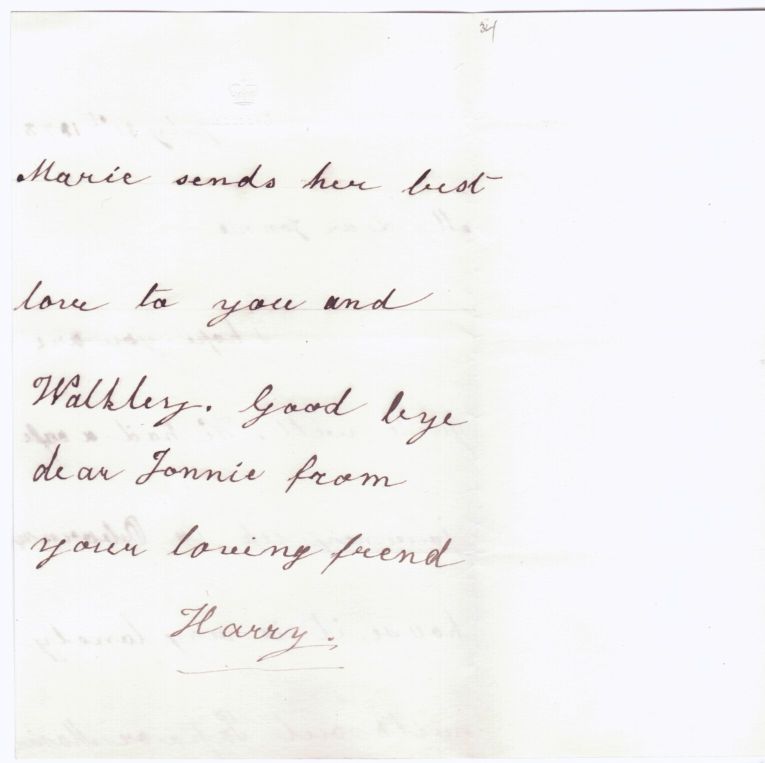 34
Marie sends her best
love to you and
Walkley. Good bye
dear Jonnie from
your loving frend
Harry.